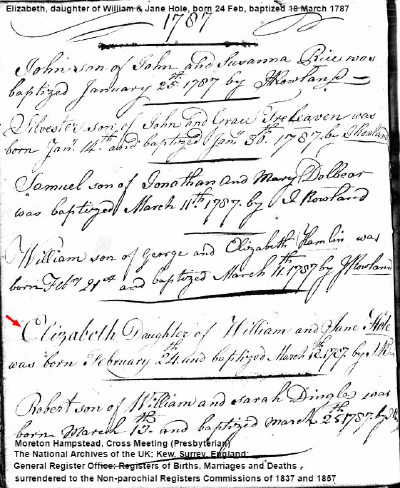 Elizabeth, daughter of William & Jane Hole, born 24 Feb, baptized 18 March 1787
1787
John son of John and Susanna Rice was
baptized January 25th 1787 by J Rowland
Silvester son of John and Grace Treleaven was
born Jany. 14th and baptized Jany 30th. 1787. by J Rowland
Samuel son of Jonathan and Mary Dolbear
was baptized March 11th 1787. by J Rowland
William son of George and Elizabeth Hamlin was
born Feby 21st and baptized March 11. 1787 by J Rowland
Elizabeth Daughter of William and Jane Hole
was born February 24th and baptized March 18th 1787. by
Robert son of William and Sarah Dingle was
born March 13th. and baptized March 25th 1787. by
Moreton Hampstead, Cross Meeting (Presbyterian)
The National Archives of the UK; Kew, Surrey, England;
General Register Office: Registers of Births, Marriages and Deaths ,
surrendered to the Non-parochial Registers Commissions of 1837 and 1857